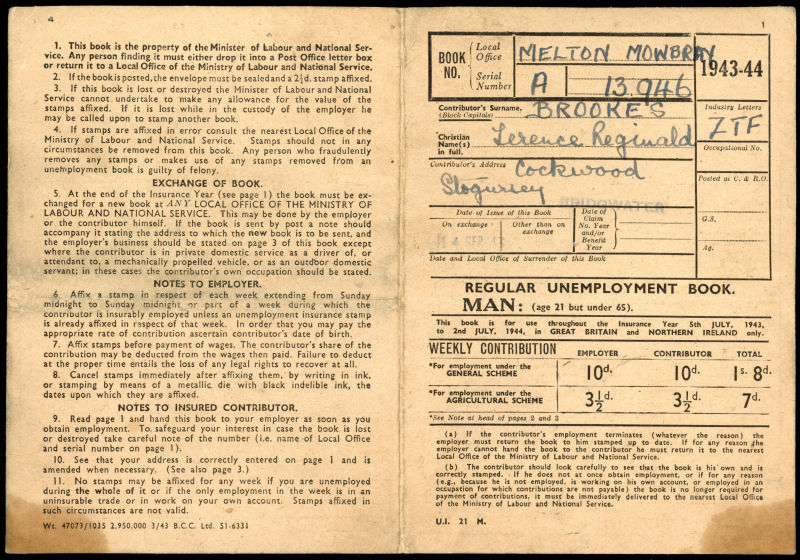 4
1. This book is the property of the Minister of Labour and National Ser-
vice. Any person finding it must either drop it into a Post Office letter box
or return it to a Local Office of the Ministry of Labour and National Service.
2. If the book is posted, the envelope must be sealed and a 2½d. stamp affixed.
3. If this book is lost or destroyed the Minister of Labour and National
Service cannot undertake to make any allowance for the value of the
stamps affixed. If it is lost while in the custody of the employer he
may be called upon to stamp another book.
4. If stamps are affixed in error consult the nearest Local Office of the
Ministry of Labour and National Service. Stamps should not in any
circumstances be removed from this book. Any person who fraudulently
removes any stamps or makes use of any stamps removed from an
unemployment book is guilty of felony.
EXCHANGE OF BOOK.
5. At the end of the Insurance Year (see page 1) the book must be ex-
changed for a new book at ANY LOCAL OFFICE OF THE MINISTRY OF
LABOUR AND NATIONAL SERVICE. This may be done by the employer
or the contributor himself. If the book is sent by post a note should
accompany it stating the address to which the new book is to be sent, and
the employer's business should be stated on page 3 of this book except
where the contributor is in private domestic service as a driver of, or
attendant to, a mechanically propelled vehicle, or as an outdoor domestic
servant; in these cases the contributor's own occupation should be stated.
NOTES TO EMPLOYER.
6. Affix a stamp in respect of each week extending from Sunday
midnight to Sunday midnight or part of a week during which the
contributor is insurably employed unless an unemployment insurance stamp
is already affixed in respect of that week. In order that you may pay the
appropriate rate of contribution ascertain contributor's date of birth.
7. Affix stamps before payment of wages. The contributor's share of the
contribution may be deducted from the wages then paid. Failure to deduct
at the proper time entails the loss of any legal rights to recover at all.
8. Cancel stamps immediately after affixing them, by writing in ink,
or stamping by means of a metallic die with black indelible ink, the
dates upon which they are affixed.
NOTES TO INSURED CONTRIBUTOR.
9. Read page 1 and hand this book to your employer as soon as you
obtain employment. To safeguard your interest in case the book is lost
or destroyed take careful note of the number (i.e. name of Local Office
and serial number on page 1).
10. See that your address is correctly entered on page 1 and is
amended when necessary. (See also page 3.)
11. No stamps may be affixed for any week if you are unemployed
during the whole of it or if the only employment in the week is in an
uninsurable trade or in work on your own account. Stamps affixed in
such circumstances are not valid.
Wt. 47073/1035 2,950,000 3/43 B.C.C. Ltd. 51-6331
1
BOOK NO. Local Office MELTON MOWBRAY
Serial Number A 13.946
1943-44
Contributor's Surname, (Block Capitals) BROOKES
Industry Letters
ZTF
*Christian Name(s) in full. Terence Reginald
Occupational No.
Contributor's Address Cockwood
Stogursey
BRIDGWATER
Posted at C. & R.O.
G.S.
Ag.
Date of Issue of this Book
On exchange
Other than on exchange
Date of Claim No. Year and/or Benefit Year
14 SEP
Date and Local Office of Surrender of this Book
REGULAR UNEMPLOYMENT BOOK.
MAN: (age 21 but under 65).
This book is for use throughout the Insurance Year 5th JULY, 1943,
to 2nd JULY, 1944, in GREAT BRITAIN and NORTHERN IRELAND only.
WEEKLY CONTRIBUTION EMPLOYER CONTRIBUTOR TOTAL
*For employment under the GENERAL SCHEME 10d. 10d. 1s. 8d.
*For employment under the AGRICULTURAL SCHEME 3½d. 3½d. 7d.
*See Note at head of pages 2 and 3
(a) If the contributor's employment terminates (whatever the reason) the
employer must return the book to him stamped up to date. If for any reason the
employer cannot hand the book to the contributor he must return it to the nearest
Local Office of the Ministry of Labour and National Service.
(b) The contributor should look carefully to see that the book is his own and is
correctly stamped. If he does not at once obtain employment, or if for any reason
(e.g., because he is not employed, is working on his own account, or employed in an
occupation for which contributions are not payable) the book is no longer required for
payment of contributions, it must be immediately delivered to the nearest Local Office
of the Ministry of Labour and National Service.
U.I. 21 M.